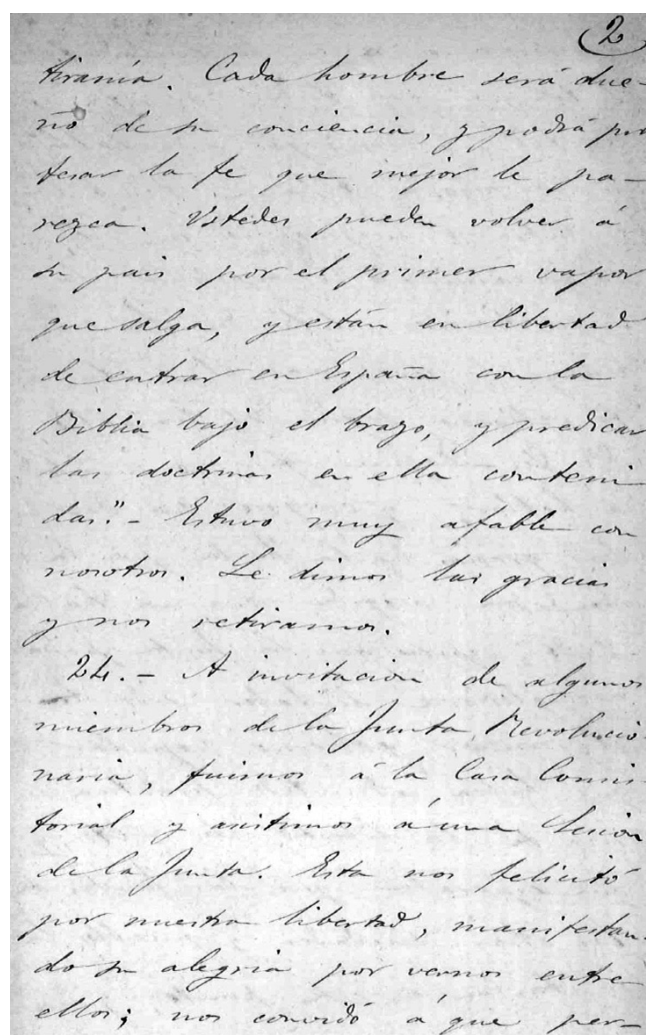 2
tiranía. Cada hombre será due-
ño de su conciencia, y podrá pro
fesar la fe que mejor le pa-
rezca. Ustedes pueden volver á
su pais por el primer vapor
que salga, y están en libertad
de entrar en España con la
Biblia bajo el brazo, y predicar
las doctrinas en ella conteni
das."- Estuvo muy afable con
nosotros. Le dimos las gracias
y nos retiramos.
24.- A invitacion de algunos
miembros de la Junta Revolucio-
naria, fuimos á la Casa Consis-
torial y asistimos á una Sesion
de la Junta. Esta nos felicitó
por nuestra libertad, manifestan-
do su alegria por vernos entre
ellos; nos convidó á que per-